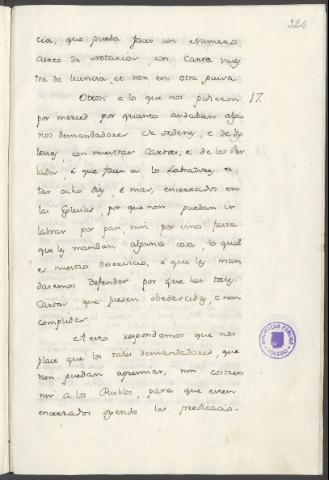 321
cia, que pueda facer un Numero
cierto de notarios, con Carta nues
tra de licencia et non en otra guisa.
Otrosi a lo que nos pidieron 17.
por merced por quanto andaban algu
nos demandadores de ordenes, e de Ygle
lesias, con nuestras Cartas, e de los Per
lados, é que facen a los Labradores es
tar ocho dias e mas, encerrados en
las Eglesias, por que non puedan ir
labrar por pan, nin por vino fasta
que les mandan alguna cosa lo qual
es nuestro deservicio, é que les man
dasemos defender por que las tales
Cartas que fuesen obedescidas, e non
complidas.
A esto respondemos que nos
place que los tales demandadores, que
non puedan apremiar, nin costren
nir a los Pueblos, para que esten
encerrados oyendo las predicacio-
BIBLIOTECA PUBLICA
TOLEDO